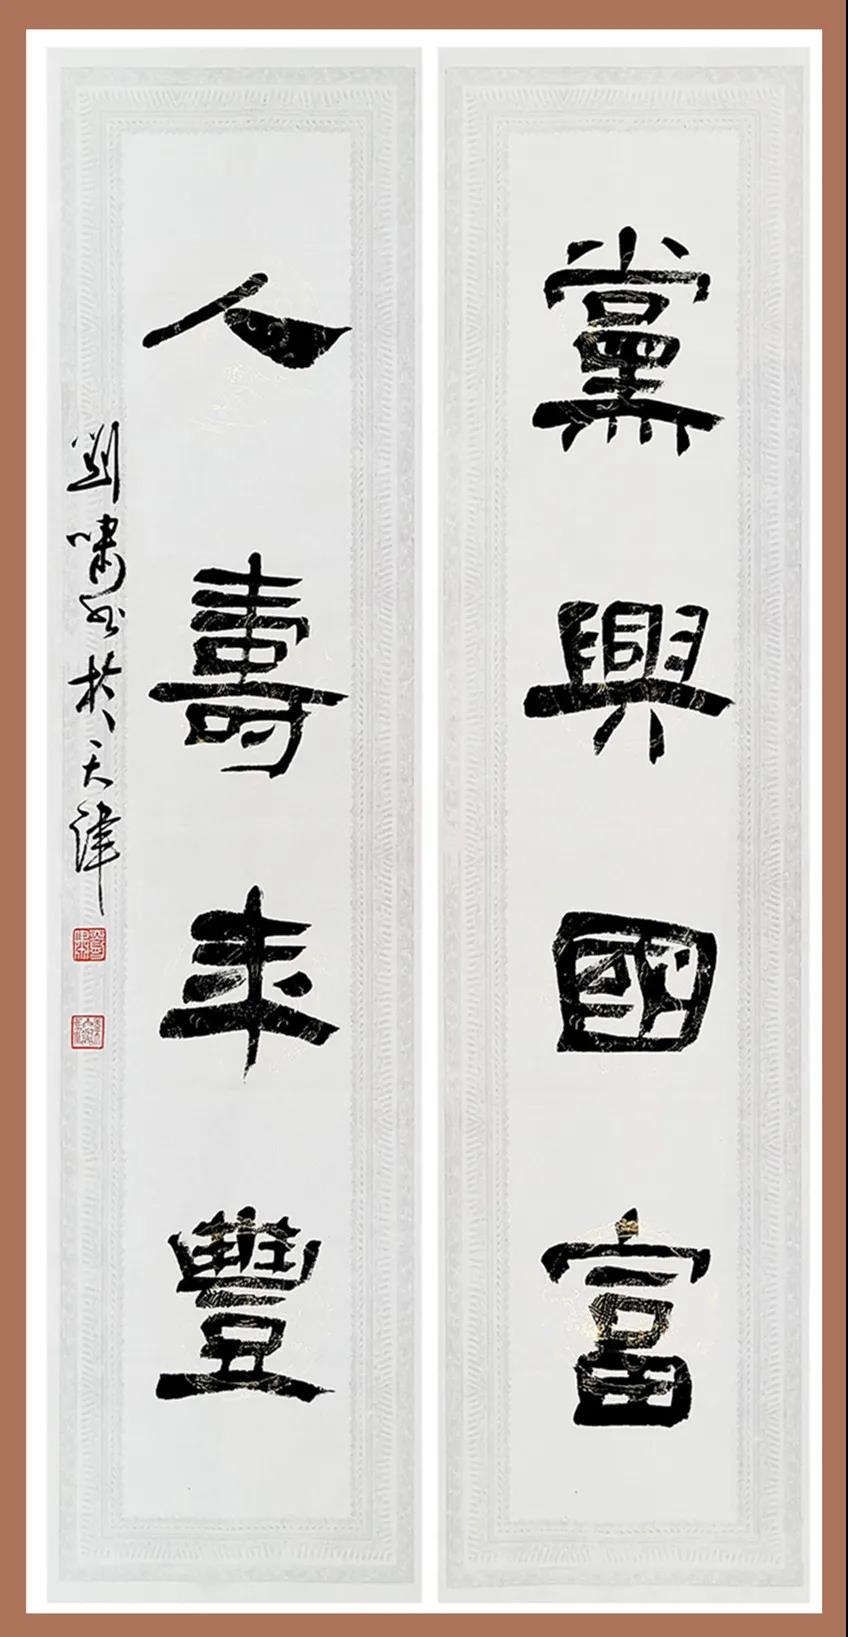 黨興國富
人壽年豐
劉嘯书於天津